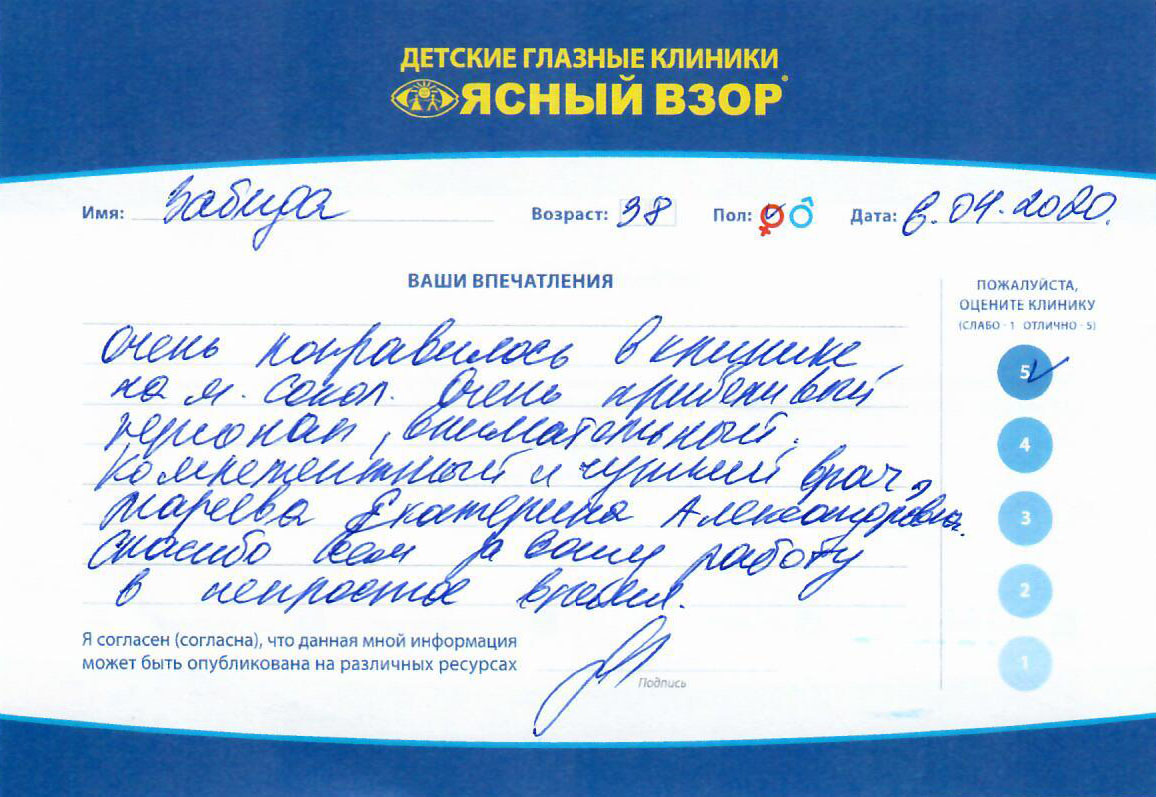 ДЕТСКИЕ ГЛАЗНЫЕ КЛИНИКИ
ЯСНЫЙ ВЗОР
Имя: Забида Возраст: 38 Пол: Дата: 6.04.2020.
ВАШИ ВПЕЧАТЛЕНИЯ
Очень понравилось в клинике
на м. Сокол. Очень
персонал, внимательный.
Компетентный и чуткий врач,
Екатерина Александровна.
Спасибо Вам за вашу работу
в непростое время.
Я согласен (согласна), что данная мной информация
может быть опубликована на различных ресурсах
Подпись
ПОЖАЛУЙСТА,
ОЦЕНИТЕ КЛИНИКУ
(СЛАБО - 1 ОТЛИЧНО - 5)
5
4
3
2
1